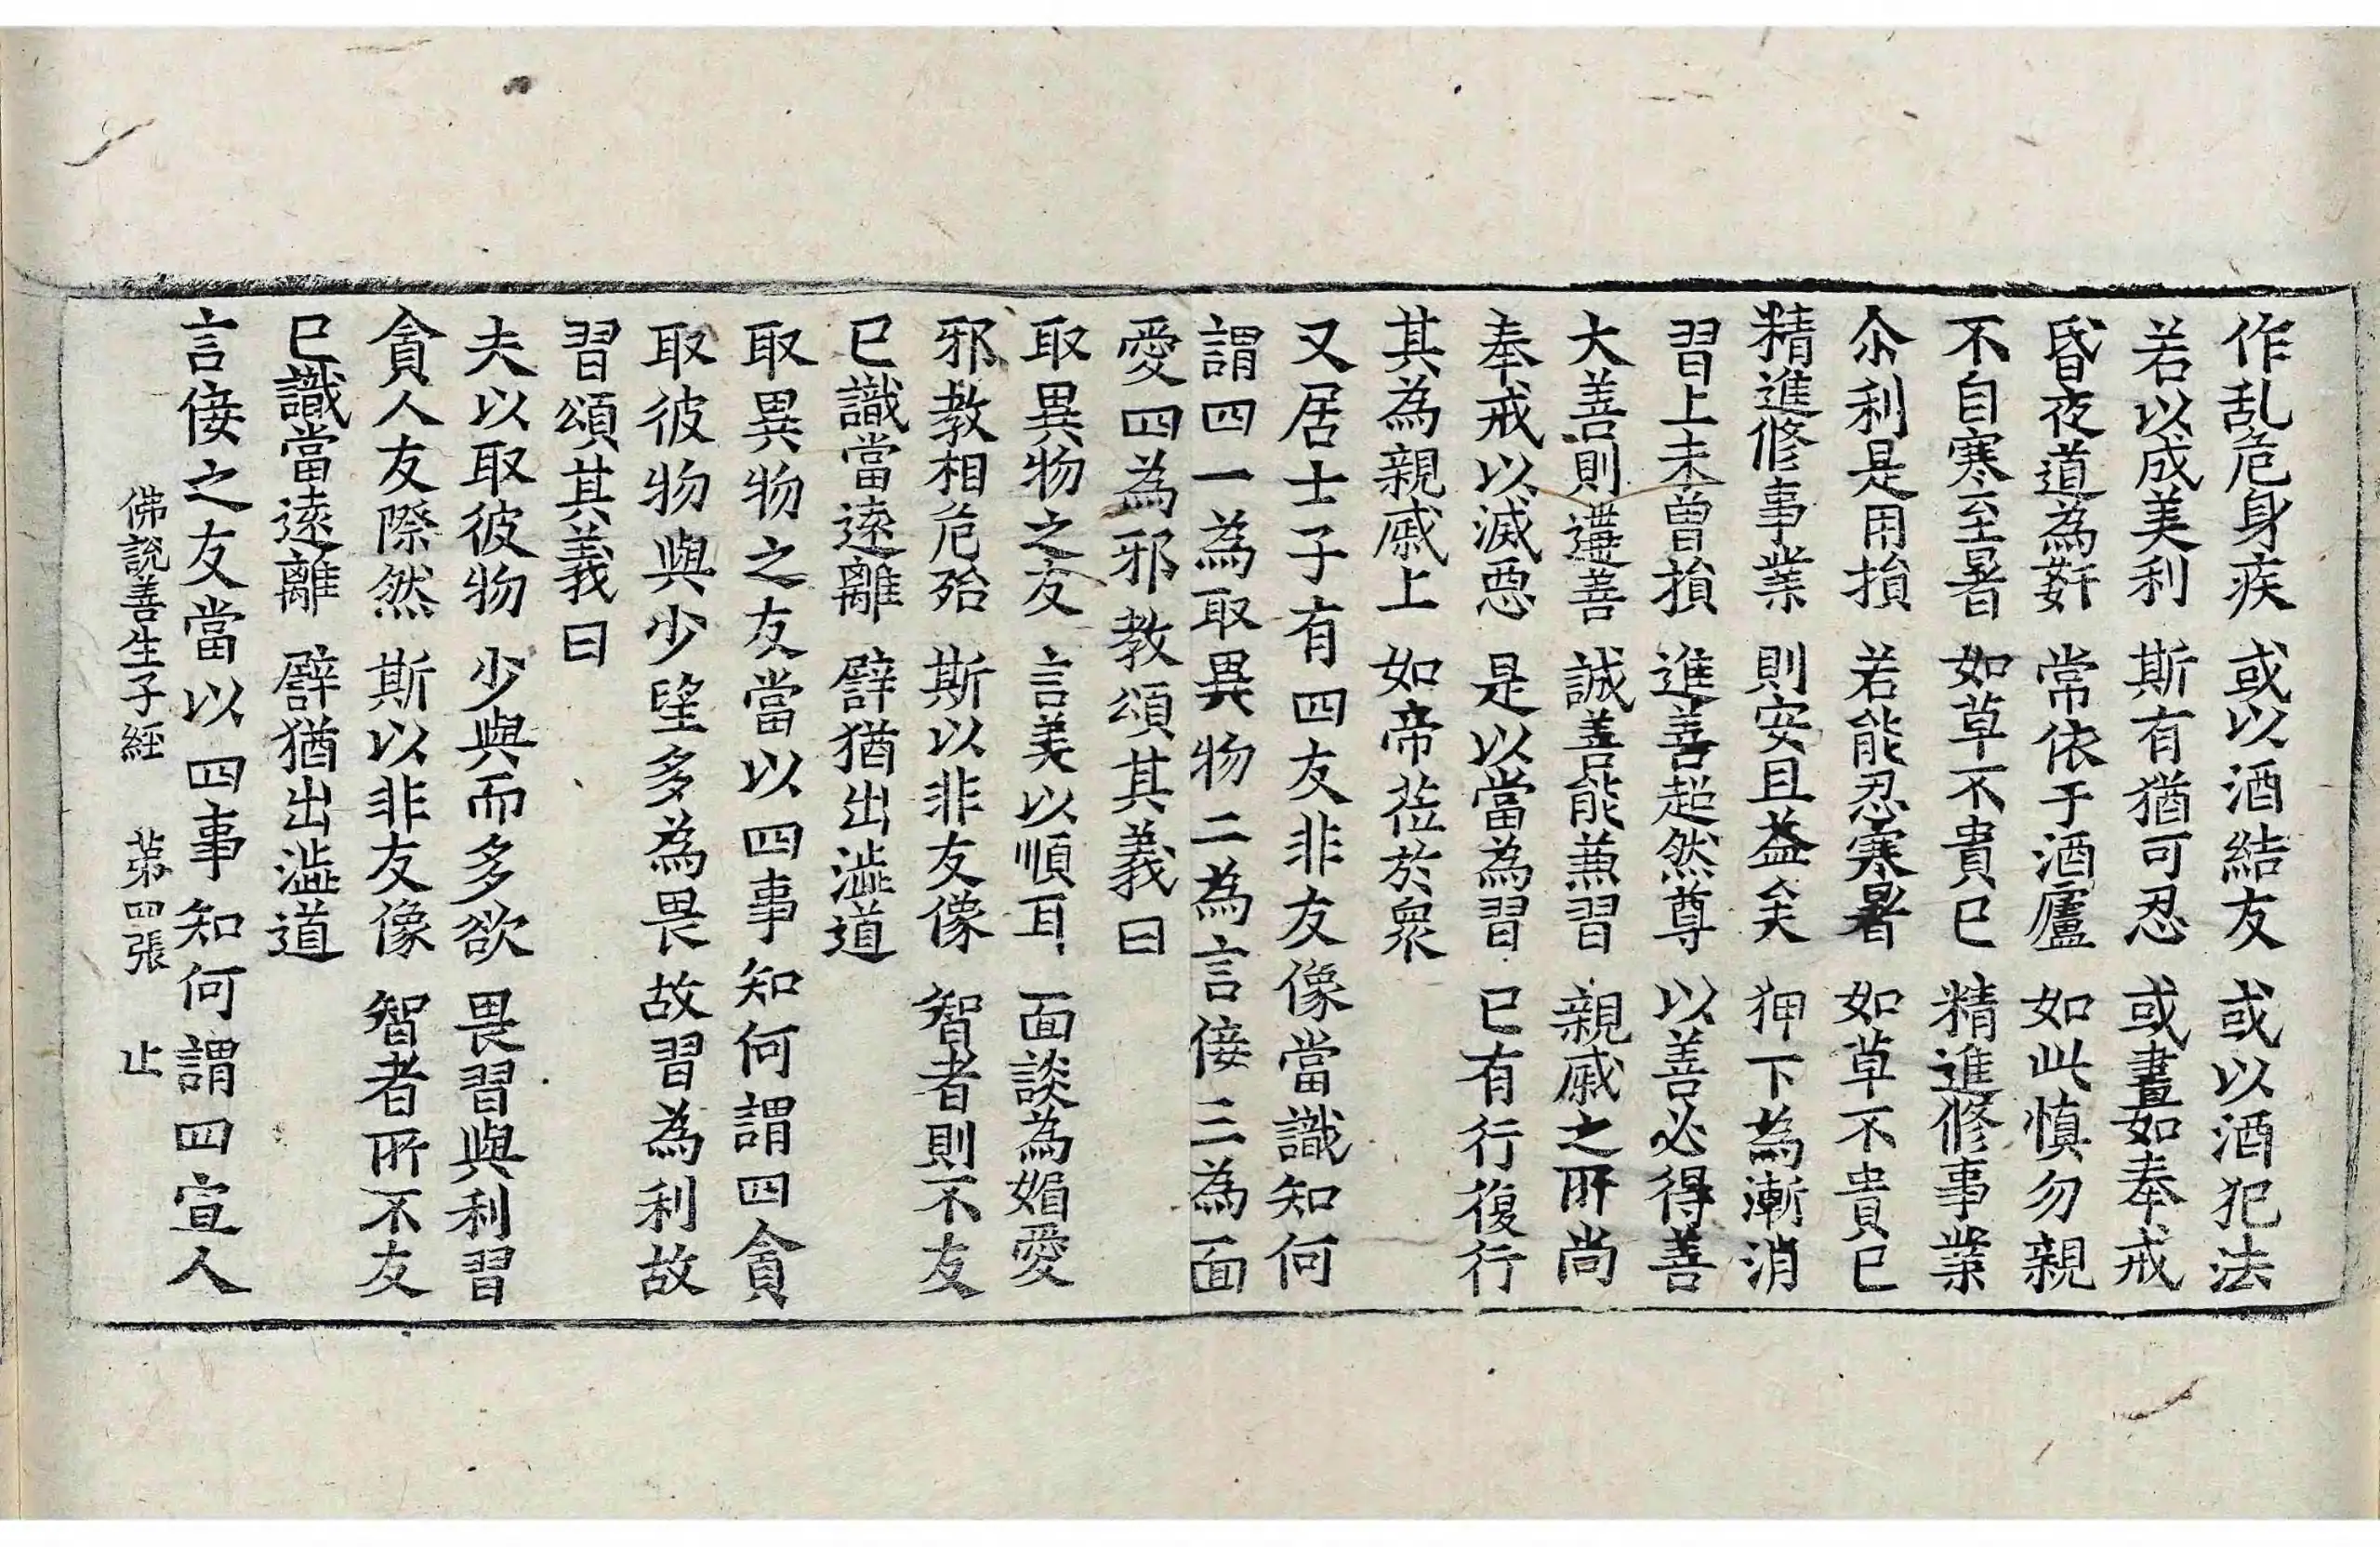 作乱危身疾　或以酒結友　或以酒犯法
若以成美利　斯有猶可忍　或晝如奉戒
昏夜道為姧　常依于酒廬　如此慎勿親
不自寒至暑　如草不貴巳　精進修事業
尒利是用損　若能忍寒暑　如草不貴巳
精進修事業　則安且益矣　狎下為漸消
習上未曾損　進善超然尊　以善必得善
大善則遭善　誠善能兼習　親戚之所尚
奉戒以滅惡　是以當為習　巳有行復行
其為親戚上　如帝莅於衆
又居士子有四友非友像當識知何
謂四一為取異物二為言倿三為面
愛四為邪教頌其義曰
取異物之友　言美以順耳　面談為媚愛
邪教相危殆　斯以非友像　智者則不友
巳識當遠離　譬猶出澁道
取異物之友當以四事知何謂四貪
取彼物與少望多為畏故習為利故
習頌其義曰
夫以取彼物　少與而多欲　畏習與利習
貪人友際然　斯以非友像　智者所不友
巳識當遠離　譬猶出澁道
言倿之友當以四事知何謂四宣人
佛說善生子經　苐四張　止